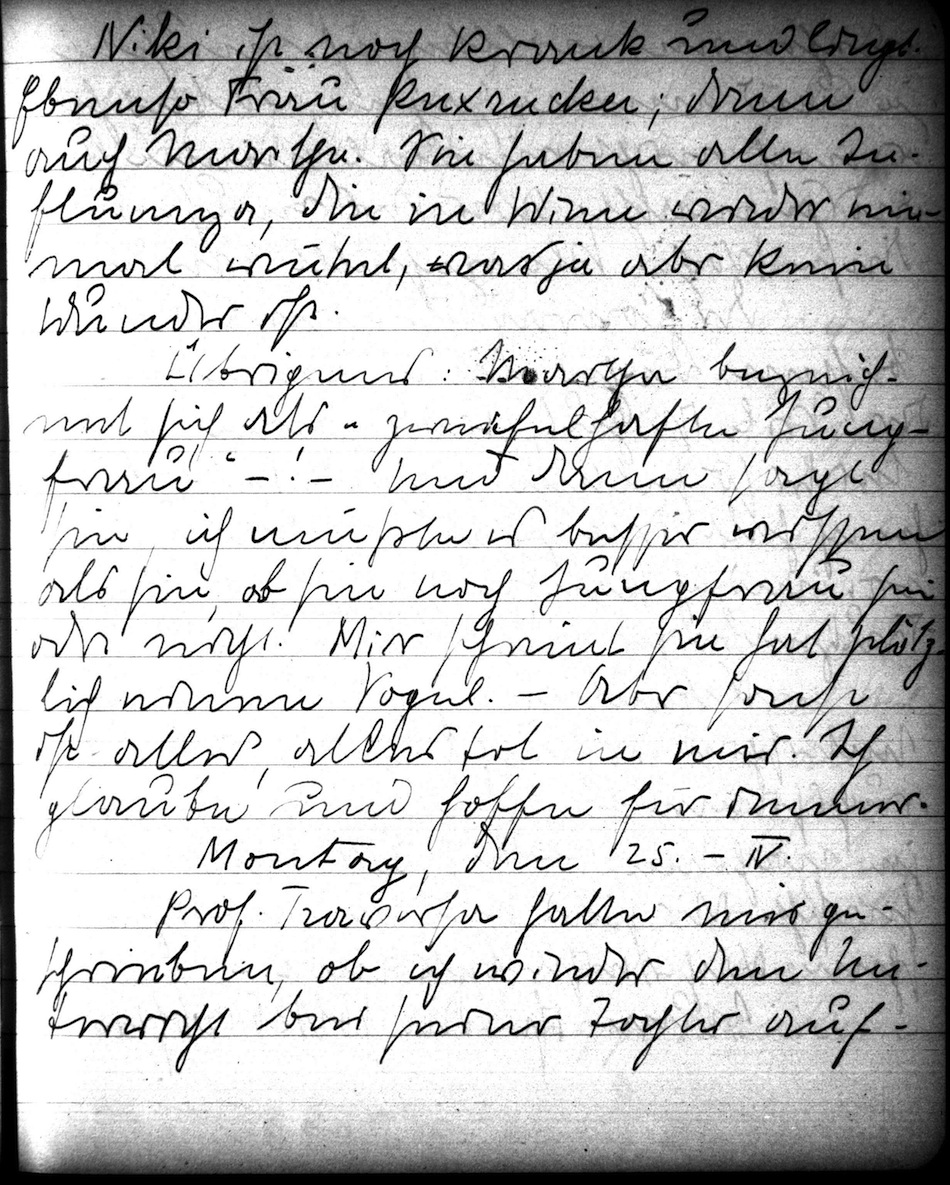 Niki ist noch krank und liegt.
Ebenso Frau Puxrucker; dann
auch Martha. Sie haben alle In-
fluenza, die in Wien wieder ein-
mal wütet, was ja aber kein
Wunder ist.
Übrigens: Martha bezeich-
net sich als „zweifelhafte Jung-
frau“ – ! – Und dann sagt
sie, ich müßte es besser wissen
als sie, ob sie noch Jungfrau sei
oder nicht. Mir scheint sie hat plötz-
lich einen Vogel. – Aber sonst
ist alles, alles tot in mir. Ich
glaube und hoffe für immer.
Montag, den 25. – IV.
Prof. hatte mir ge-
schrieben, ob ich wieder den Un-
terricht bei seiner Tochter auf-